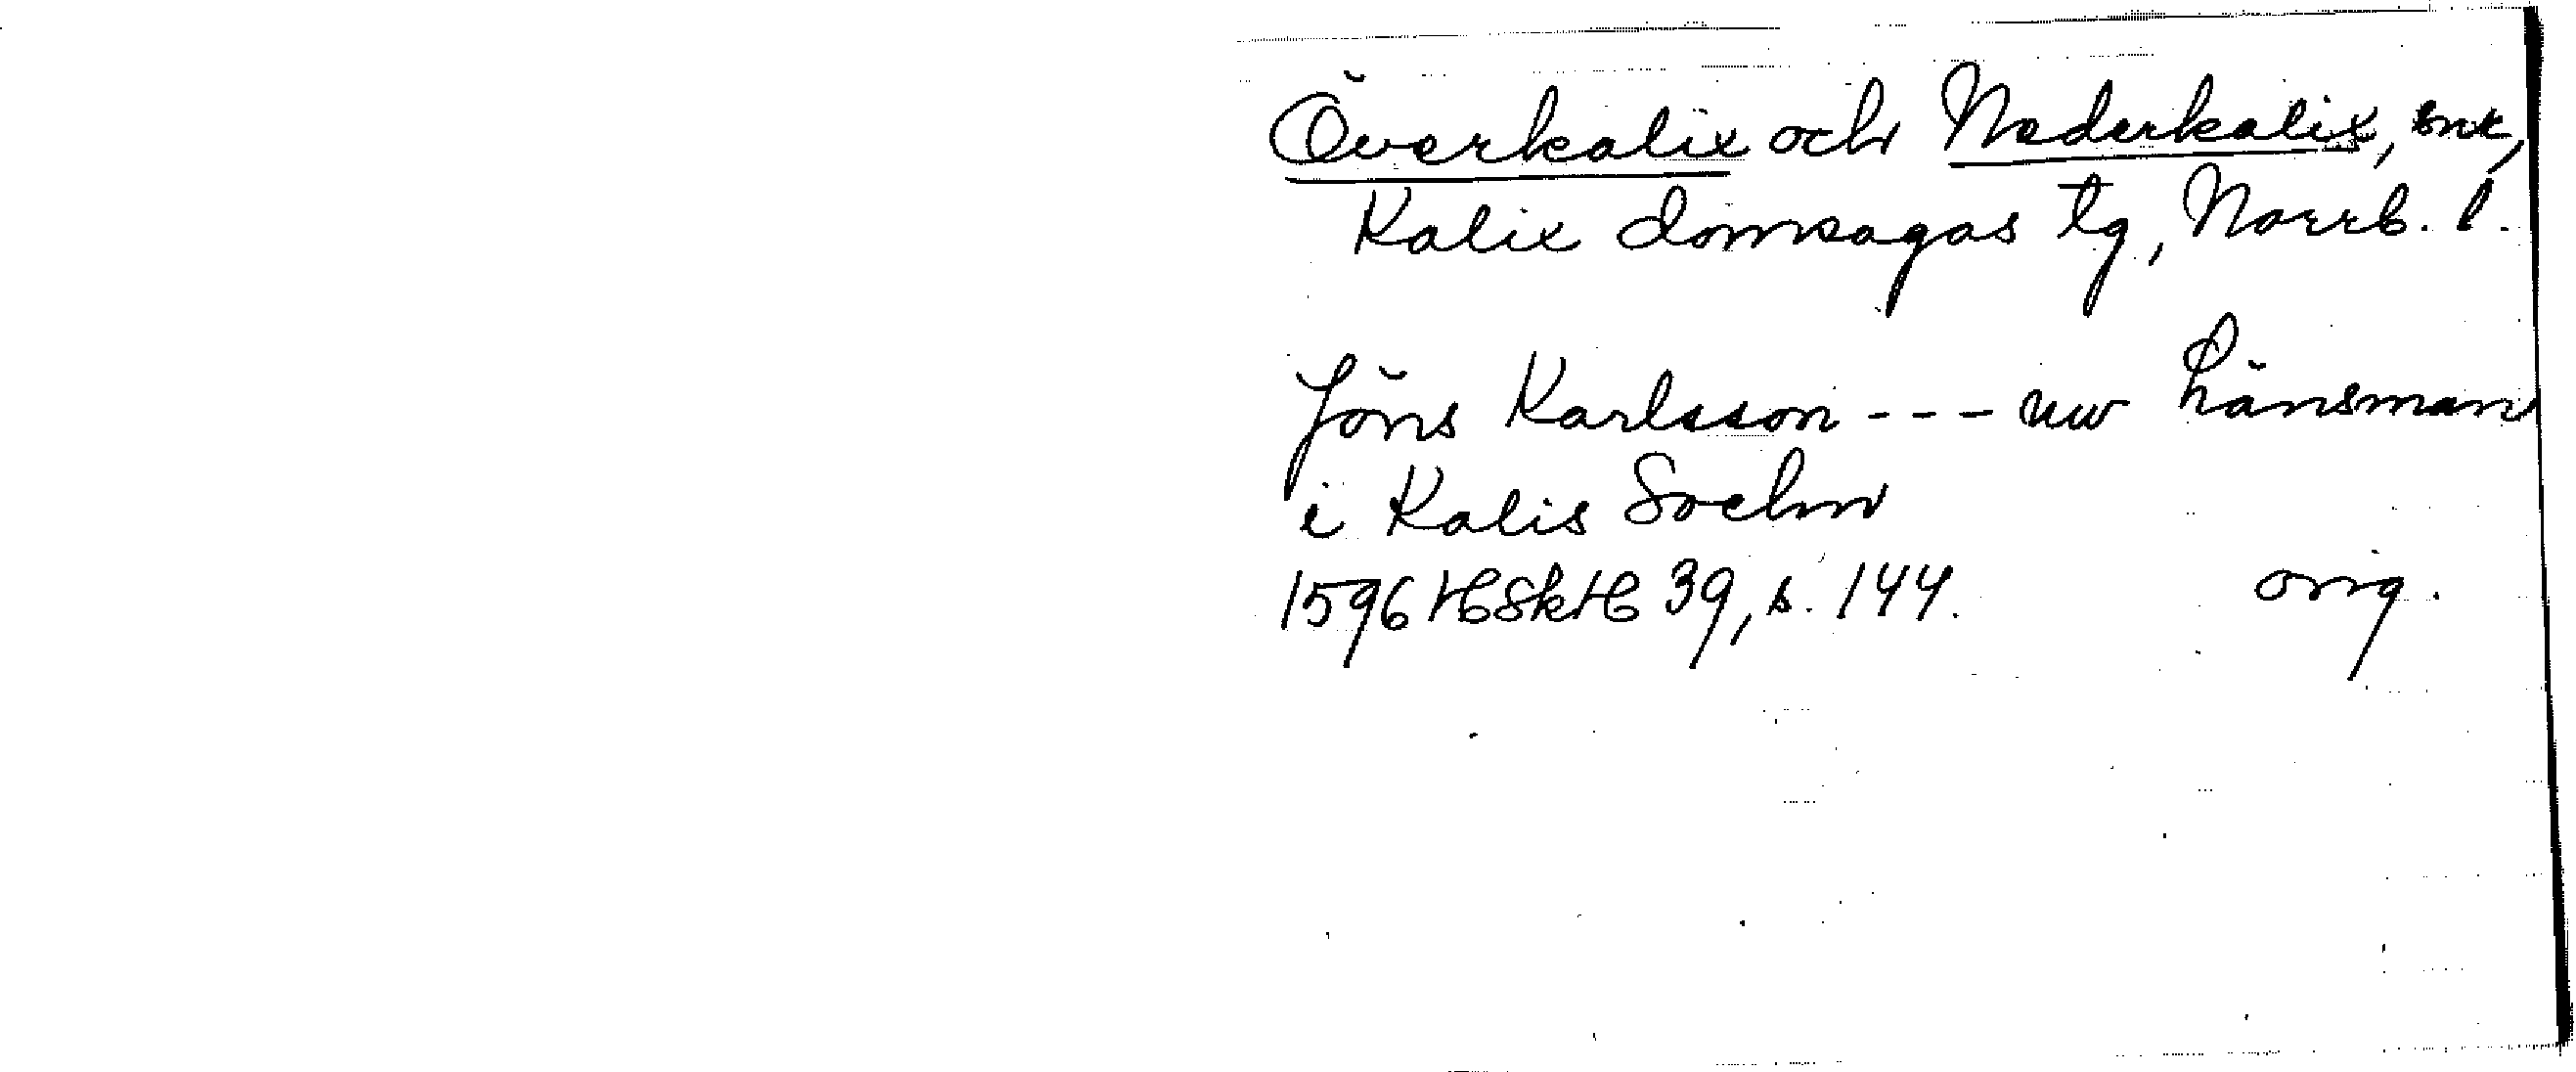 Överkalix och Nederkalix, snr,
Kalix domsagas tg, Norrb. l.
Jöns Karlsson --- nw Länsman
i Kalis Sochn
1596 HSkH 39, s. 144. orig.